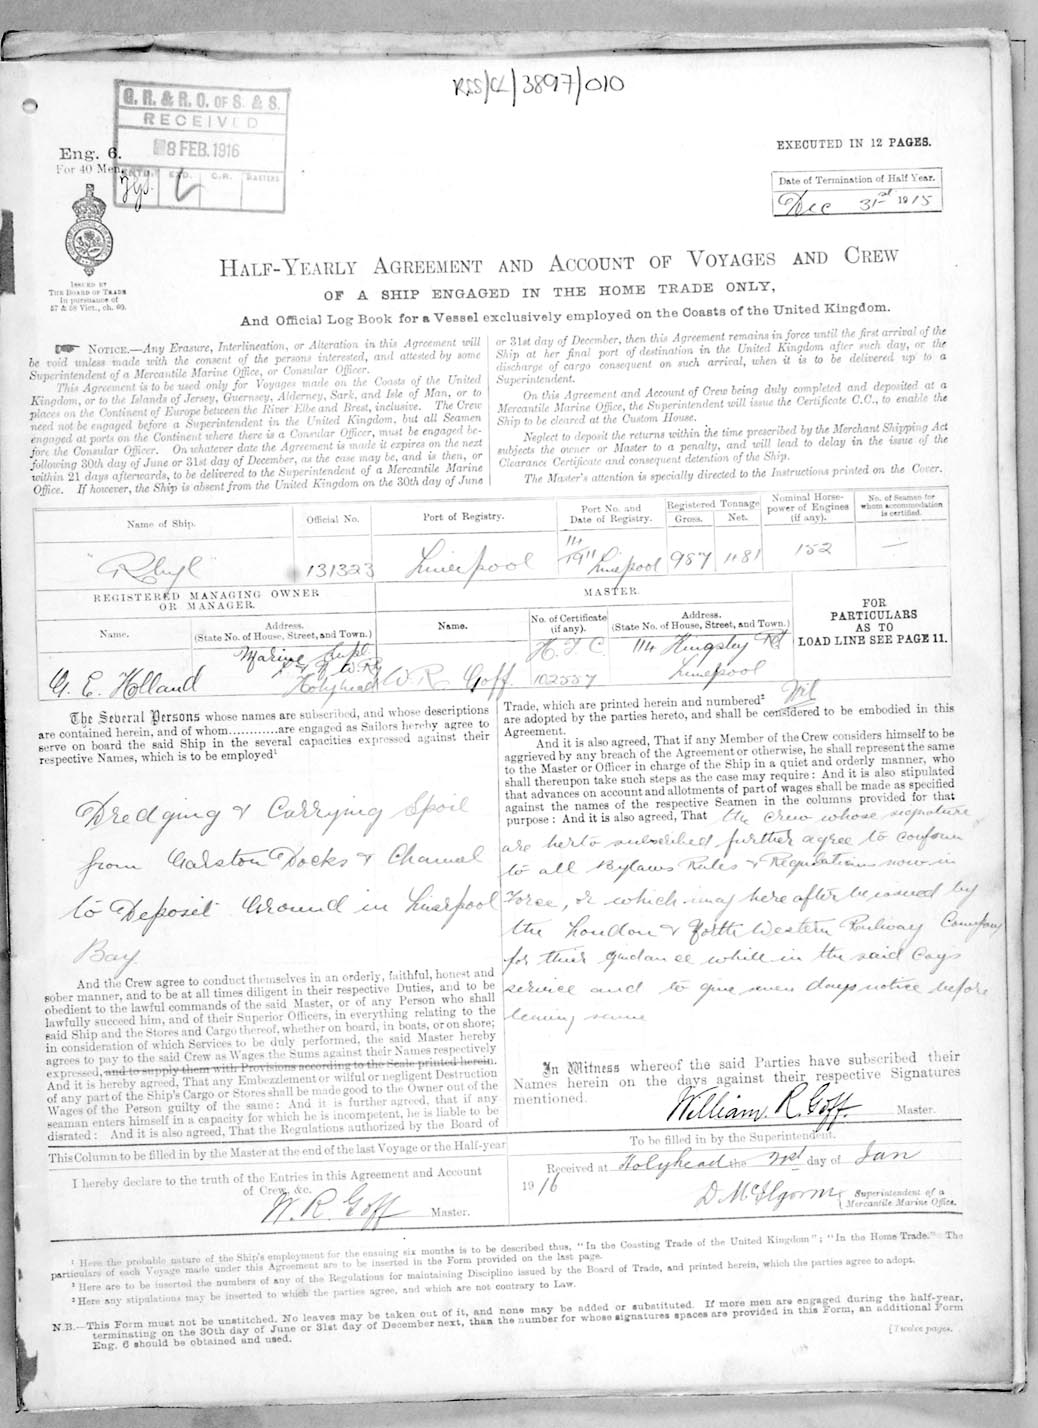 RSS/CL/3897/010
G.R. & R.O. OF S. & S.
RECEIVED
8 FEB. 1916
EXD. C.R. MASTERS
Eng. 6.
For 40 Men.
EXECUTED IN 12 PAGES.
Date of Termination of Half Year.
Dec 31st 1915
ISSUED BY
THE BOARD OF TRADE
In pursuance of
57 & 58 Vict., ch. 60.
HALF-YEARLY AGREEMENT AND ACCOUNT OF VOYAGES AND CREW
OF A SHIP ENGAGED IN THE HOME TRADE ONLY,
And Official Log Book for a Vessel exclusively employed on the Coasts of the United Kingdom.
NOTICE.—Any Erasure, Interlineation, or Alteration in this Agreement will
be void unless made with the consent of the persons interested, and attested by some
Superintendent of a Mercantile Marine Office, or Consular Officer.
This Agreement is to be used only for Voyages made on the Coasts of the United
Kingdom, or to the Islands of Jersey, Guernsey, Alderney, Sark, and Isle of Man, or to
places on the Continent of Europe between the River Elbe and Brest, inclusive. The Crew
need not be engaged before a Superintendent in the United Kingdom, but all Seamen
engaged at ports on the Continent where there is a Consular Officer, must be engaged be-
fore the Consular Officer. On whatever date the Agreement is made it expires on the next
following 30th day of June or 31st day of December, as the case may be, and is then, or
within 21 days afterwards, to be delivered to the Superintendent of a Mercantile Marine
Office. If however, the Ship is absent from the United Kingdom on the 30th day of June
or 31st day of December, then this Agreement remains in force until the first arrival of the
Ship at her final port of destination in the United Kingdom after such day, or the
discharge of cargo consequent on such arrival, when it is to be delivered up to a
Superintendent.
On this Agreement and Account of Crew being duly completed and deposited at a
Mercantile Marine Office, the Superintendent will issue the Certificate C.C., to enable the
Ship to be cleared at the Custom House.
Neglect to deposit the returns within the time prescribed by the Merchant Shipping Act
subjects the owner or Master to a penalty, and will lead to delay in the issue of the
Clearance Certificate and consequent detention of the Ship.
The Master's attention is specially directed to the Instructions printed on the Cover.
Name of Ship. Official No. Port of Registry. Port No. and Date of Registry. Registered Tonnage Gross. Net. Nominal Horse-power of Engines (if any). No. of Seamen for whom accommodation is certified.
"Rhyl" 131323 Liverpool 1911 Liverpool 987 481 152 —
REGISTERED MANAGING OWNER
OR MANAGER.
MASTER.
Name. Address. (State No. of House, Street, and Town.) Name. No. of Certificate (if any). Address. (State No. of House, Street, and Town.)
FOR
PARTICULARS
AS TO
LOAD LINE SEE PAGE 11.
G. E. Holland Marine Supt. L & N. W. Rly Holyhead W. R. Goff. H.T.C. 102557 114 Kingsley Rd Liverpool
The Several Persons whose names are subscribed, and whose descriptions
are contained herein, and of whom............are engaged as Sailors hereby agree to
serve on board the said Ship in the several capacities expressed against their
respective Names, which is to be employed¹
Dredging & Carrying Spoil
from Garston Docks & Channel
to Deposit Ground in Liverpool
Bay
And the Crew agree to conduct themselves in an orderly, faithful, honest and
sober manner, and to be at all times diligent in their respective Duties, and to be
obedient to the lawful commands of the said Master, or of any Person who shall
lawfully succeed him, and of their Superior Officers, in everything relating to the
said Ship and the Stores and Cargo thereof, whether on board, in boats, or on shore;
in consideration of which Services to be duly performed, the said Master hereby
agrees to pay to the said Crew as Wages the Sums against their Names respectively
expressed, and to supply them with Provisions according to the Scale printed herein.
And it is hereby agreed, That any Embezzlement or wilful or negligent Destruction
of any part of the Ship's Cargo or Stores shall be made good to the Owner out of the
Wages of the Person guilty of the same: And it is further agreed, that if any
seaman enters himself in a capacity for which he is incompetent, he is liable to be
disrated: And it is also agreed, That the Regulations authorized by the Board of
Trade, which are printed herein and numbered² Nil
are adopted by the parties hereto, and shall be considered to be embodied in this
Agreement.
And it is also agreed, That if any Member of the Crew considers himself to be
aggrieved by any breach of the Agreement or otherwise, he shall represent the same
to the Master or Officer in charge of the Ship in a quiet and orderly manner, who
shall thereupon take such steps as the case may require: And it is also stipulated
that advances on account and allotments of part of wages shall be made as specified
against the names of the respective Seamen in the columns provided for that
purpose: And it is also agreed, That the Crew whose signature
are herto subscribed further agree to conform
to all Bylaws Rules & Regulations now in
Force, or which may here after be issued by
the London & North Western Railway Company
for their guidance while in the said Coys
service and to give seven days notice before
leaving same
In Witness whereof the said Parties have subscribed their
Names herein on the days against their respective Signatures
mentioned.
William. R. Goff. Master.
This Column to be filled in by the Master at the end of the last Voyage or the Half-year
I hereby declare to the truth of the Entries in this Agreement and Account
of Crew, &c.
W. R. Goff Master.
To be filled in by the Superintendent.
Received at Holyhead the 21st day of Jan
1916
Superintendent of a
Mercantile Marine Office.
¹ Here the probable nature of the Ship's employment for the ensuing six months is to be described thus, "In the Coasting Trade of the United Kingdom"; "In the Home Trade." The
particulars of each Voyage made under this Agreement are to be inserted in the Form provided on the last page.
² Here are to be inserted the numbers of any of the Regulations for maintaining Discipline issued by the Board of Trade, and printed herein, which the parties agree to adopt.
³ Here any stipulations may be inserted to which the parties agree, and which are not contrary to Law.
N.B.—This Form must not be unstitched. No leaves may be taken out of it, and none may be added or substituted. If more men are engaged during the half-year,
terminating on the 30th day of June or 31st day of December next, than the number for whose signatures spaces are provided in this Form, an additional Form
Eng. 6 should be obtained and used.
[Twelve pages.